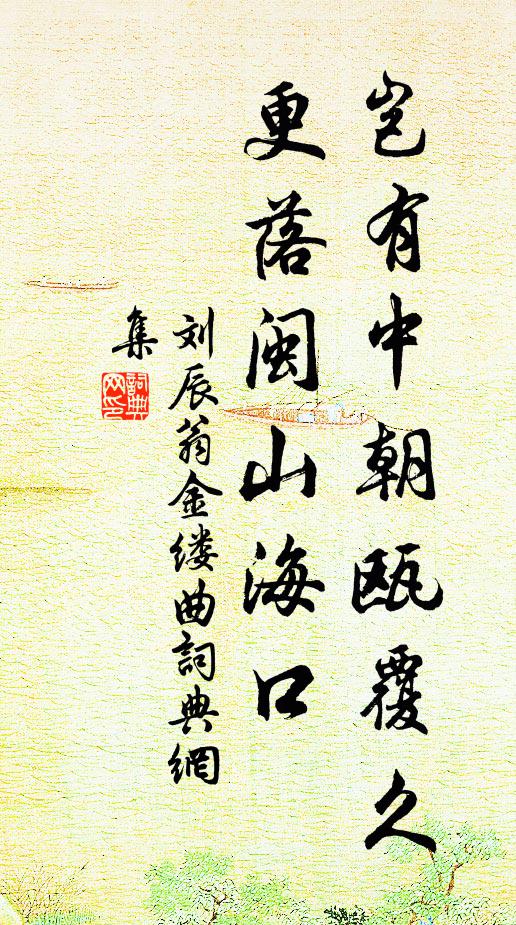 岂有中朝瓯覆久
更落闽山海口
刘辰翁金缕曲詞典網
集
詞典
网印